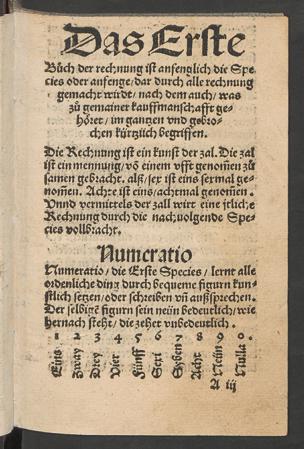 Das Erste
Bůch der rechnung ist anfenglich die Spe
cies oder anfenge/ dar durch alle rechnung
gemacht wirdt/ nach dem auch/ was
zů gemainer kauffmanschafft ge-
höret/ im gantzen vnd gebro-
chen kürtzlich begriffen.
Die Rechnung ist ein kunst der zal. Die zal
ist ein mennung/ vō einem vfft genom̄en zů
samen gebracht. als/ sex ist eins sexmal ge-
nom̄en. Achte ist eins/ achtmal genom̄en.
Vnnd vermittels der zall wirt eine jtliche
Rechnung durch die nachuolgende Spe-
cies vollbracht.
Numeratio
Numeratio/ die Erste Species/ lernt alle
ordenliche ding durch bequeme figurn kun-
stlich setzen/ oder schreiben vn̄ außsprechen.
Der selbigē figurn sein neün bedeutlich/ wie
hernach steht/ die zehet vnbedeutlich.
1 2 3 4 5 6 7 8 9 0.
Eins Zway Drey Vier Fünff Sexi Syben Acht Neün Nulla
A iij